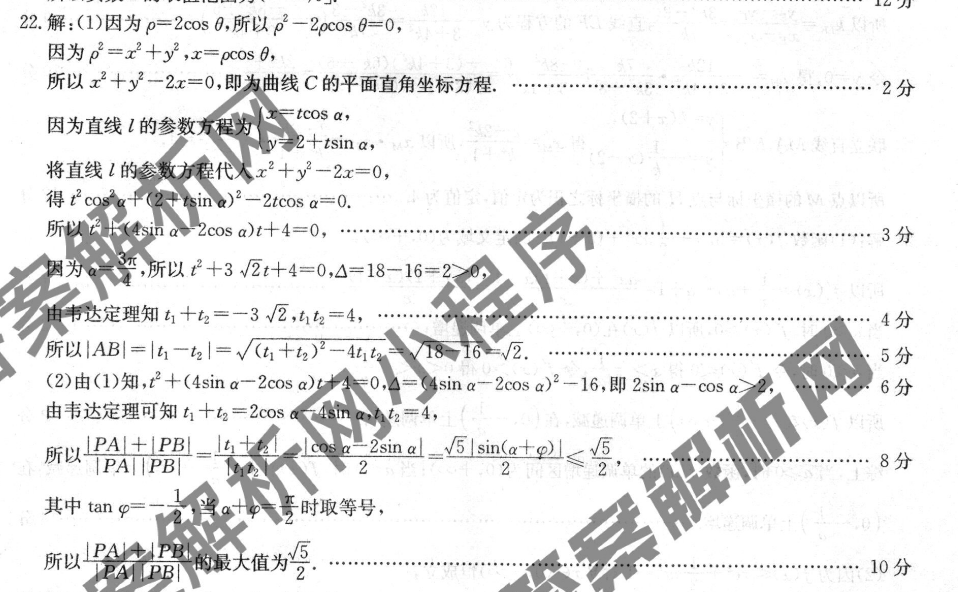 12分
22.解:(1)因为ρ=2cos θ,所以ρ²-2ρcos θ=0,
因为ρ²=x²+y²,x=ρcos θ,
所以x²+y²-2x=0,即为曲线C的平面直角坐标方程. …… 2分
因为直线l的参数方程为{x=tcos α, y=2+tsin α,
将直线l的参数方程代入x²+y²-2x=0,
得t²cos²α+(2+tsin α)²-2tcos α=0.
所以t²+(4sin α-2cos α)t+4=0, …… 3分
因为α=3π/4,所以t²+3√2t+4=0,Δ=18-16=2>0,
由韦达定理知t₁+t₂=-3√2,t₁t₂=4, …… 4分
所以|AB|=|t₁-t₂|=√((t₁+t₂)²-4t₁t₂)=√(18-16)=√2. …… 5分
(2)由(1)知,t²+(4sin α-2cos α)t+4=0,Δ=(4sin α-2cos α)²-16,即2sin α-cos α>2, …… 6分
由韦达定理可知t₁+t₂=2cos α-4sin α,t₁t₂=4,
所以(|PA|+|PB|)/(|PA||PB|)=|t₁+t₂|/|t₁t₂|=|cos α-2sin α|/2=√5|sin(α+φ)|/2≤√5/2, …… 8分
其中tan φ=-1/2,当α+φ=π/2时取等号,
所以(|PA|+|PB|)/(|PA||PB|)的最大值为√5/2. …… 10分
答案解析网小程序
答案解析网